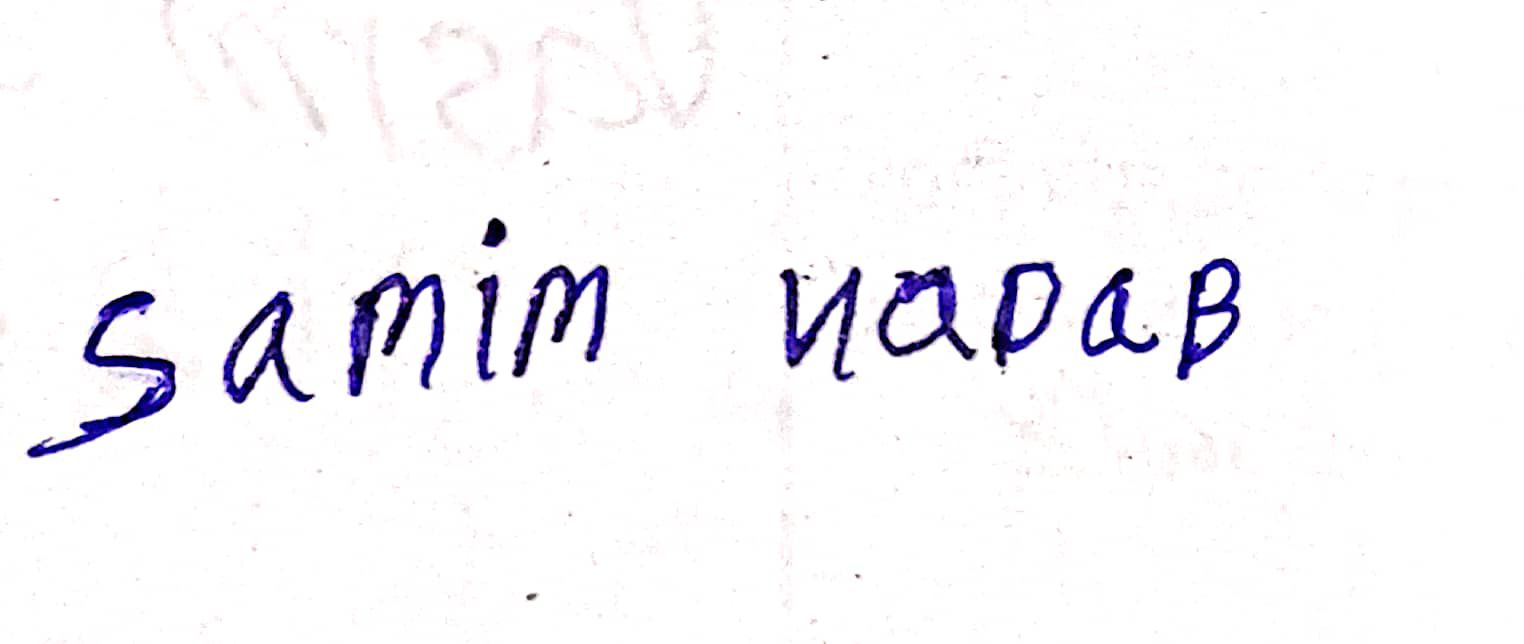 Samim uadab